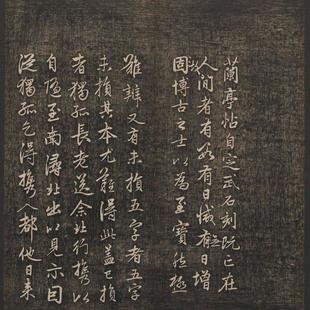 蘭亭帖自定武石刻既亡在
人間者有數有日減無日增
固博古之士以為至寶然極
難辨又有未損五字者五字
未損其本尤難得此蓋已損
者獨孤長老送余北行攜以
自隨至南潯北出以見示因
從獨孤乞得攜入都他日來